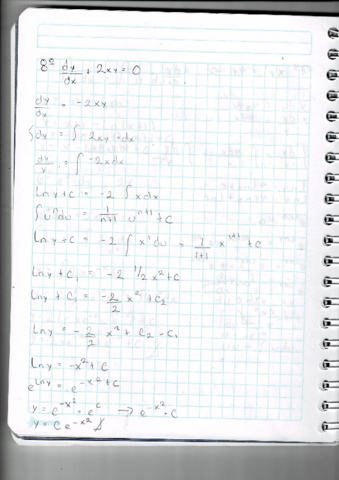 8º dy/dx + 2xy = 0
dy/dx = -2xy
∫dy = ∫-2xy dx
dy/y = ∫-2xdx
Lny+C = -2 ∫xdx
∫uⁿdu = 1/(n+1) uⁿ⁺¹ +C
Lny+C = -2 ∫x¹du = 1/(1+1) x¹⁺¹ + C
Lny + C₁ = -2 1/2 x² + C
Lny + C₁ = -2/2 x² + C₂
Lny = -2/2 x² + C₂ - C₁
Lny = -x² + C
e^Lny = e^-x²+C
y = e^-x² · e^C → e^-x² · C
y = C e^-x²